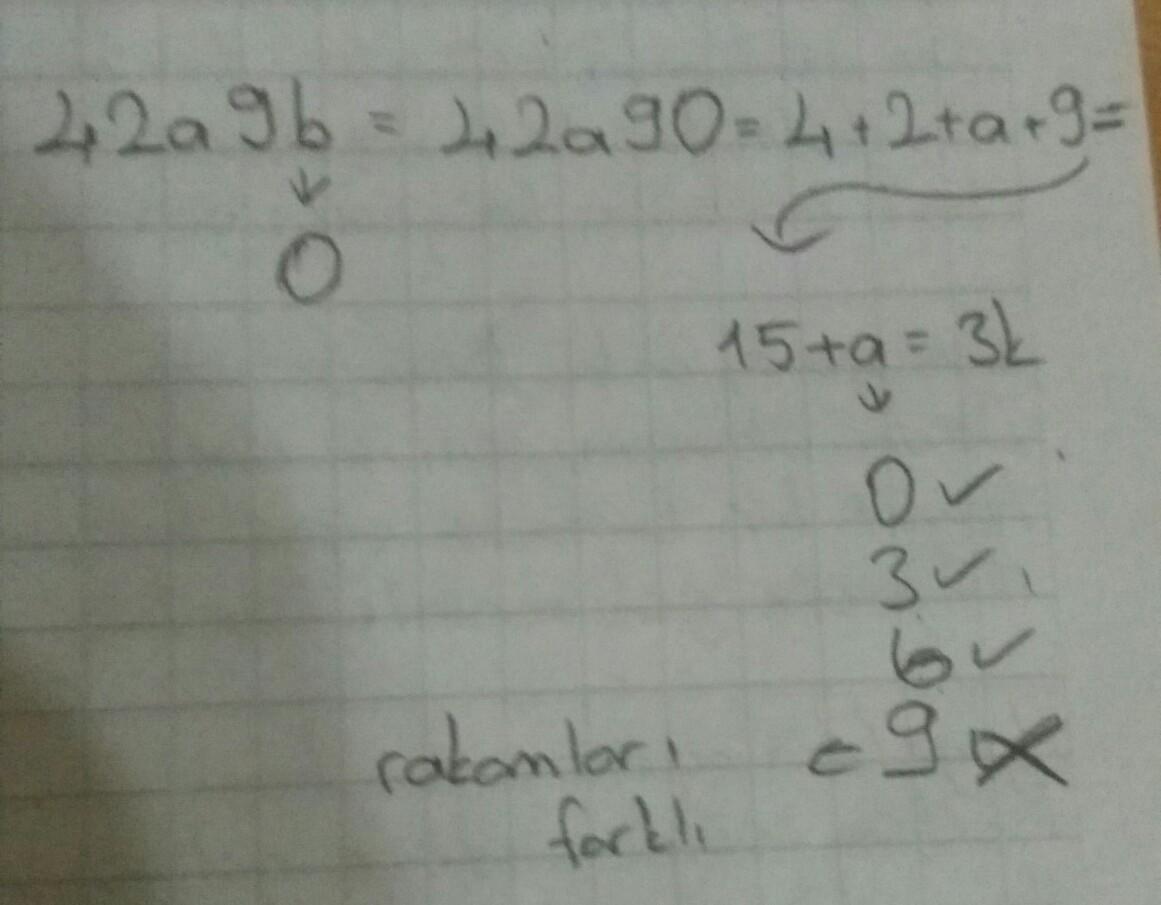 42a9b = 42a90 = 4+2+a+9=
↓
0
15+a = 3k
↓
0 ✓
3 ✓
6 ✓
rakamları = 9 X
farklı